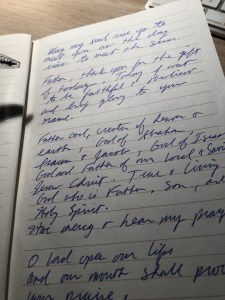 May my soul rise up to
meet you as the day
rises to meet the sun.
Father, thank you for the gift
of today. Today I want
to be faithful & obedient
and bring glory to your
name.
Father God, creator of heaven &
earth, God of Abraham,
Isaac & Jacob, God of Israel
God and Father of our Lord & Savi
Jesus Christ. True & living
God who is Father, Son, and
Holy Spirit.
Have mercy & hear my pray
O Lord open our lips
and our mouth shall proc
your praise.